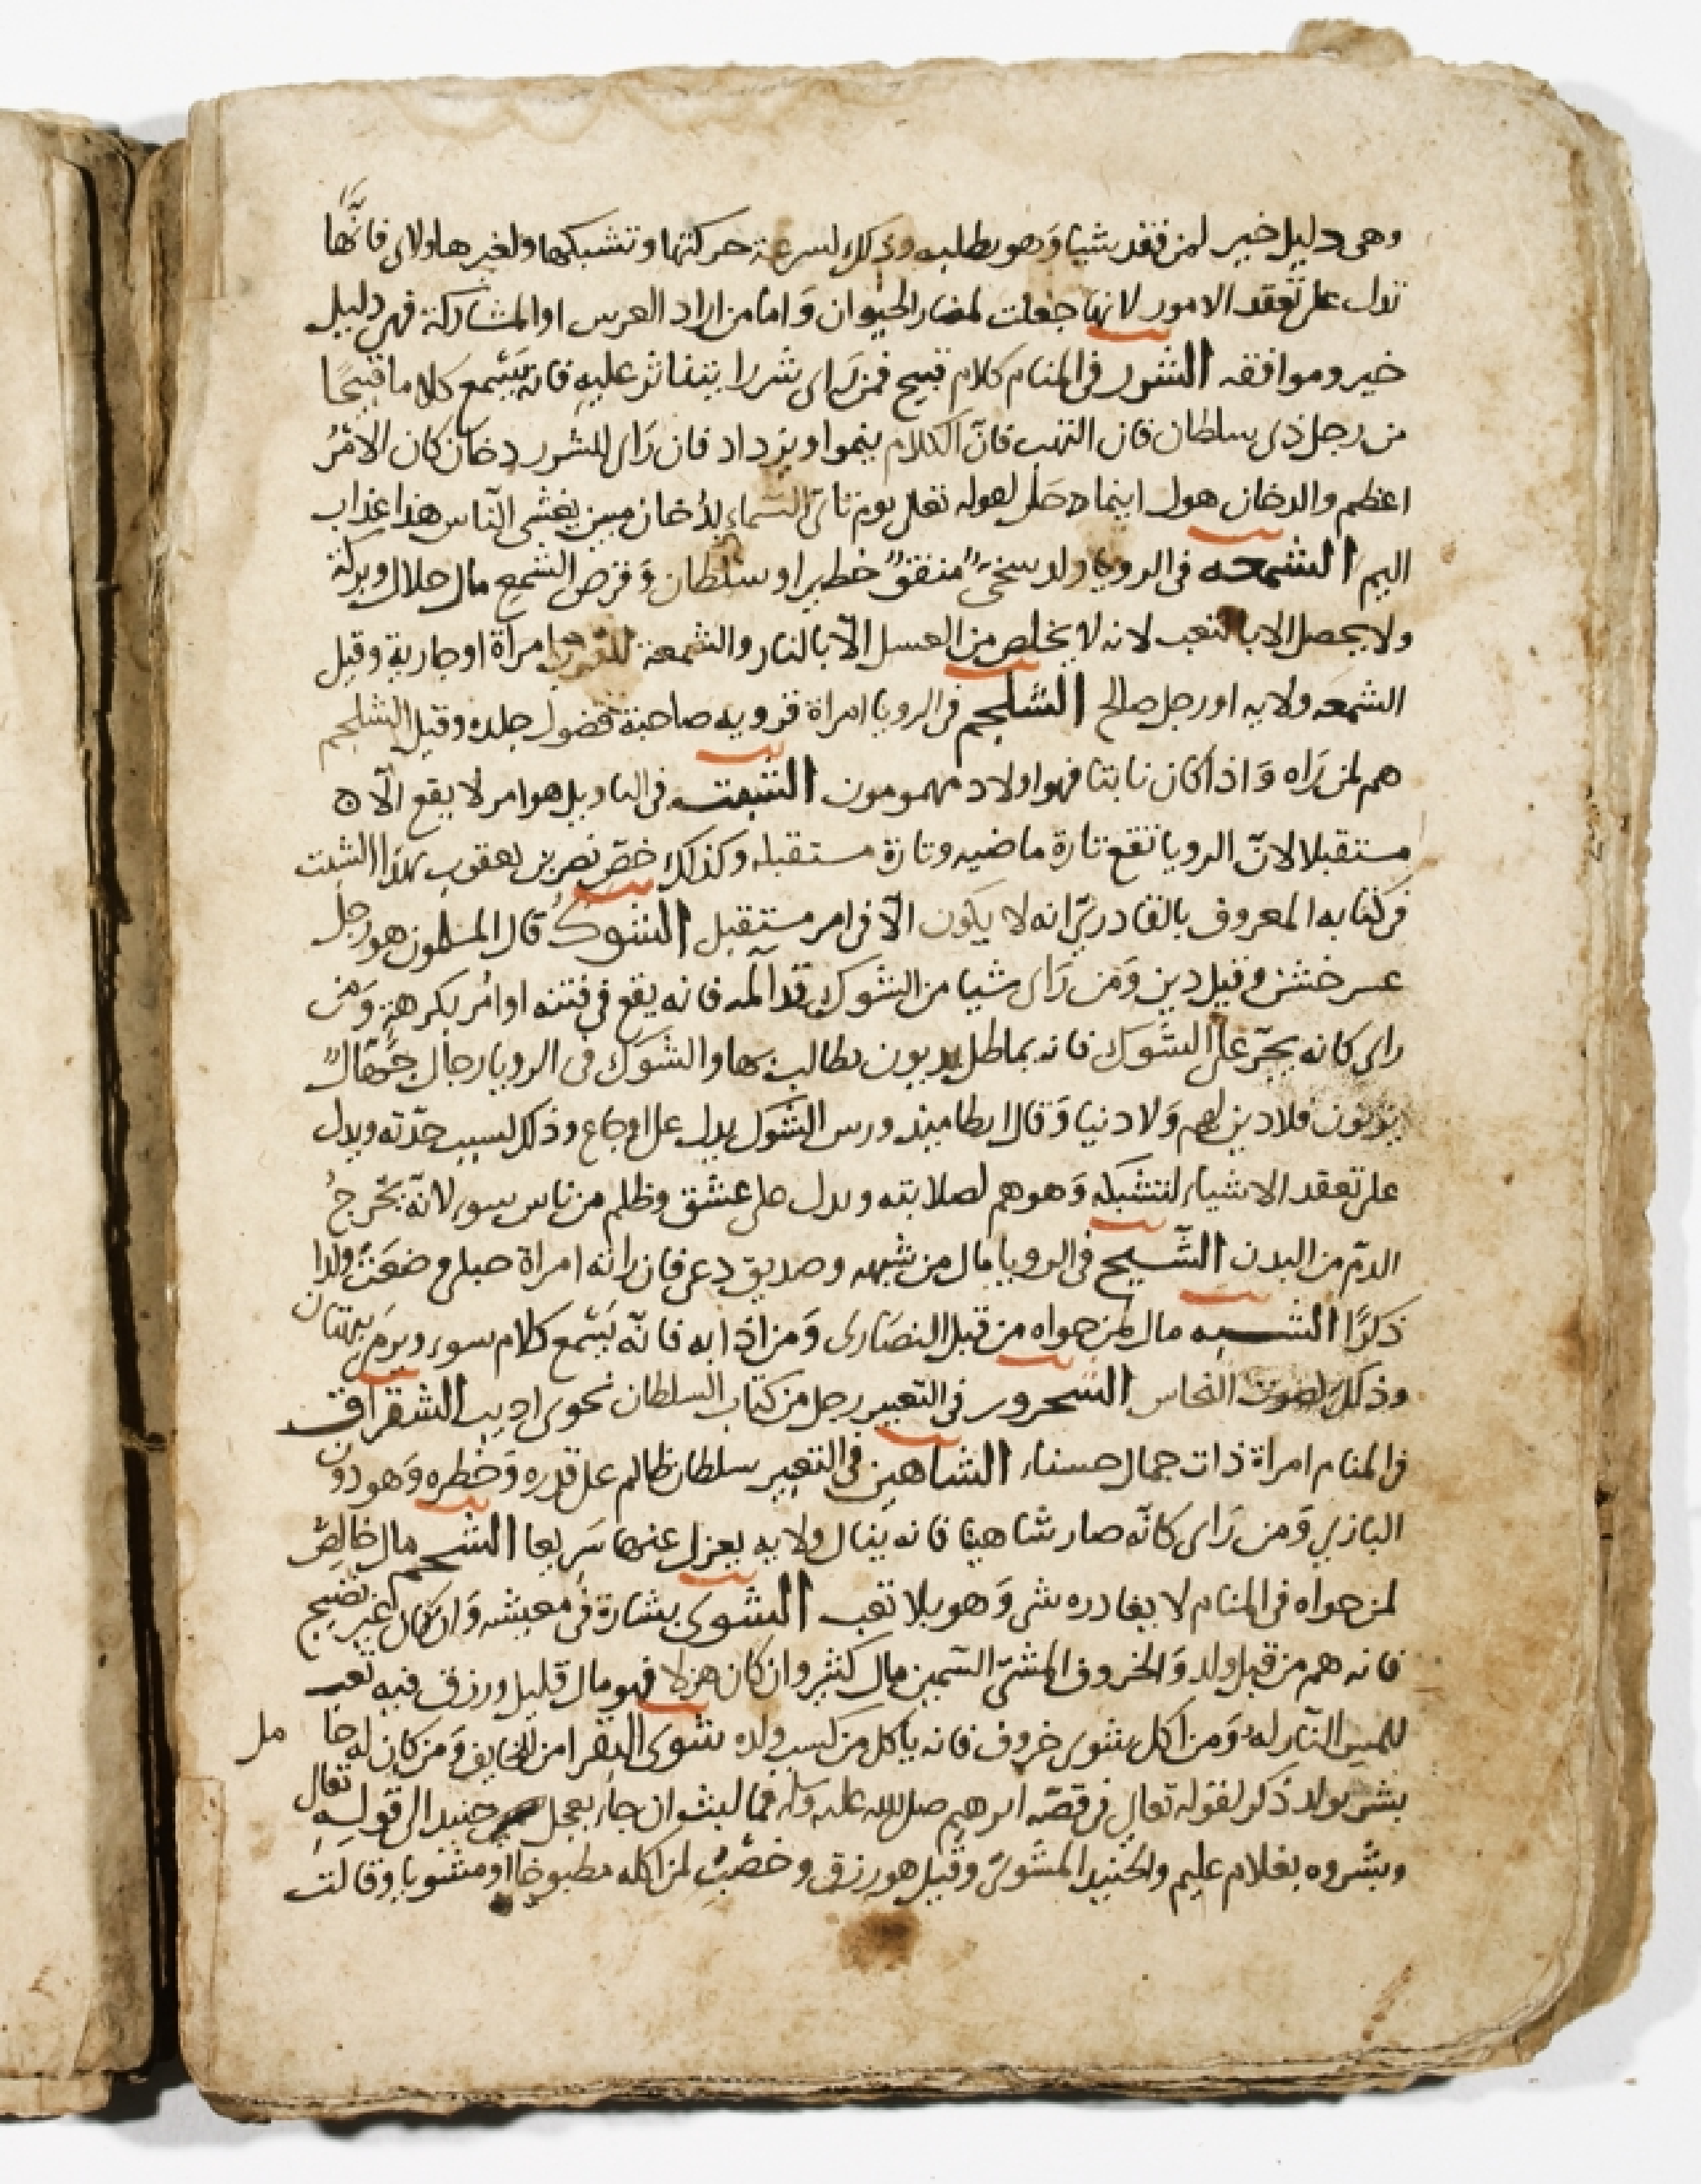 وهي دليل خير لمن فقد شيا وَهو يطلبه وذلك لسرعة حركتها وتشبكها ولغير هاولاى فانَّها
تدل على تَعقد الامور لانها جعلت لمضار الحيوان وَاما من اراد العرس او المشاركة فهي دليل
خير وموافقه الشرر في المنام كلام قبيح فمن رَاى شررا يتناثر عليهِ فانه يَسْمع كلاما قبيحًا
من رجل ذى سلطان فان التهب فانّ الكلام ينموا ويزداد فان رَاى للشرر دخان كان الامْرُ
اعظم والدخان هول اينما دخل لقوله تعلى يوم تاتى السّماءِ بدُخان مبين يغشى النّاس هذا عذاب
اليم الشمعه في الرويا ولد سخىّ منفقٌ خطير او سلطان وَقرص الشمع مال حلال وبركة
ولا يحصل الا بالتعب لانه لا يخلص من العسل الّا بالنار والشمعة امرَاة او جارية وقيل
الشمعَه ولايه او رجل صالح الشلجم في الرويا امراة قرويه صاحبة فضول جلده وقيل الشلجم
هم لمن رَاه وَاذا كان نابتا فهوا ولاد مهمومون الشبت في التاويل هو امر لا يقع الّا
مستقبلا لانّ الرويا تقع تارة ماضيه وتارة مستقبله وكذلك خصّ نصر بن يعقوب بهذا الشبت
في كتابه المعروف بالقادريّ انه لا يكون الّا في امر مستقبل الشوكُ قال المسلمون هو رجل
عسر خشن وقيل دين وَمَن رَاى شيا من الشوك قد المه فانه يقع في فتنه او امُر يكرههُ وَمَن
راى كانه يجرّ على الشَوك فانه يماطل بديون يطالب بها والشَوَك في الرويا رجال جُهّالٌ
فلا دين لهم وَلا دنيا وَقال ارطاميدورس الشَوك يدل على اوجاع وذلك لسبب حدّته ويدل
على تعقد الاشياء لتشبكه وَهو هم لصلابته ويدل على عشق وظلم من ناس سوء لانّه يخْرجُ
الدمّ من البدن الشّيح في الرويا مال من شبهه وصديق دعى فان راته امراة حبلى وضعَتْ ولدا
ذكرًا الشبه مال لمن حواه من قبل النصَارى وَمن اذابه فانّه يَسْمع كلام سوء ويرمَى ببهتان
وذلك لصوت النحاس الشحرور في التعبير رجل من كتاب السلطان نحوى اديب الشقراق
في المنام امراة ذات جمال حسناء الشاهين في التعبير سلطان ظالم على قدره وَخطره وَهو دون
البازي وَمن رَاى كانّه صار شاهينا فانه ينال ولايه يعزل عنها سَريعا الشحم مال خالِصٌ
لمن حواه في المنام لا يغادره شى وَهو بلا تعب الشوى بشارة في معيشه وَان كان غير نضيج
فانه هم من قبل ولد وَالخروف المشوىّ السّمين مال كثير وان كان هزلا فهو مال قليل ورزق فيه تعب
لمسيس النّار له وَمن اكل شوى خروف فانه ياكل من كسب ولده شوى البقر امن للخايف وَمن كان له حا مل
بشر بولد ذكر لقوله تعالى في قصّة ابرهيم صلى الله عليه وسلم فما لبث ان جاء بعجل حنيد الى قوله تعالى
وبشروه بغلام عليم والحنيد المشوىّ وقيل هو رزق وخصْبٌ لمن اكله مطبوخا او مشويا وقالت